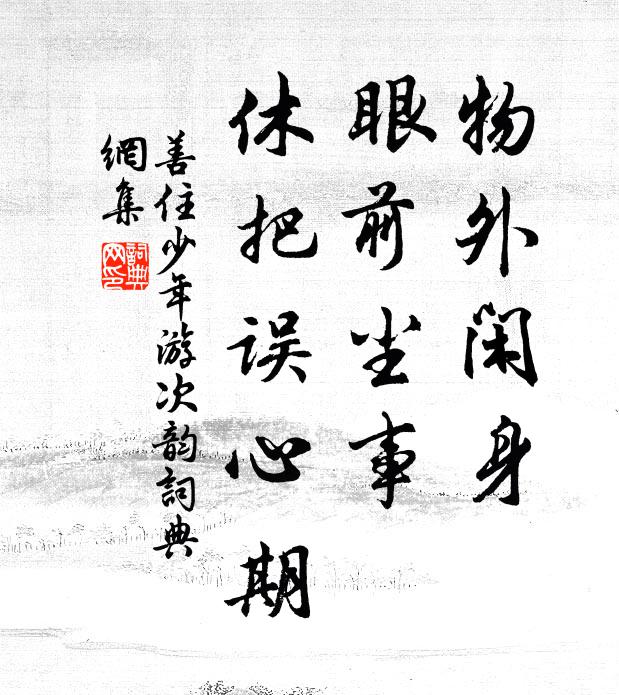 物外闲身
眼前尘事
休把误心期
善住少年游次韵詞典
網集
詞典
网印